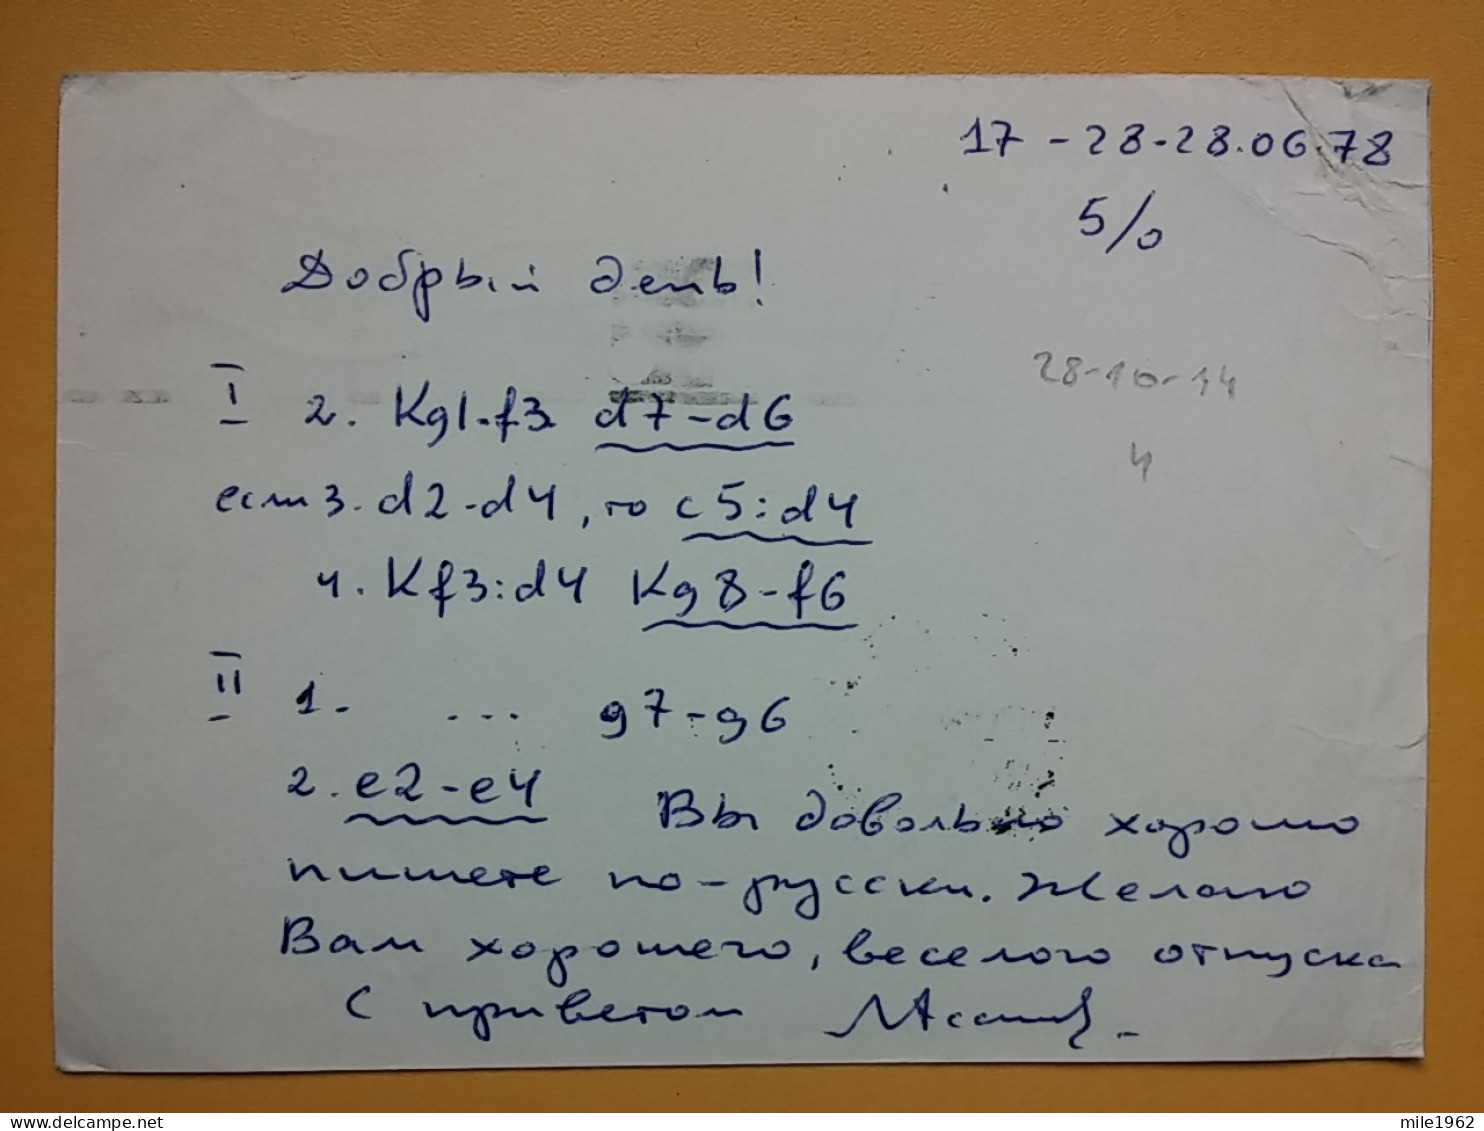 17 - 28 - 28.06.78
5/0
Добрый день!
28-10-14
4
I 2. Kg1-f3 d7-d6
если 3. d2-d4, то c5:d4
4. Kf3:d4 Kg8-f6
II 1. ... g7-g6
2. e2-e4 Вы довольно хорошо
пишете по-русски. Желаю
Вам хорошего, веселого отпуска
С приветом
mile1962